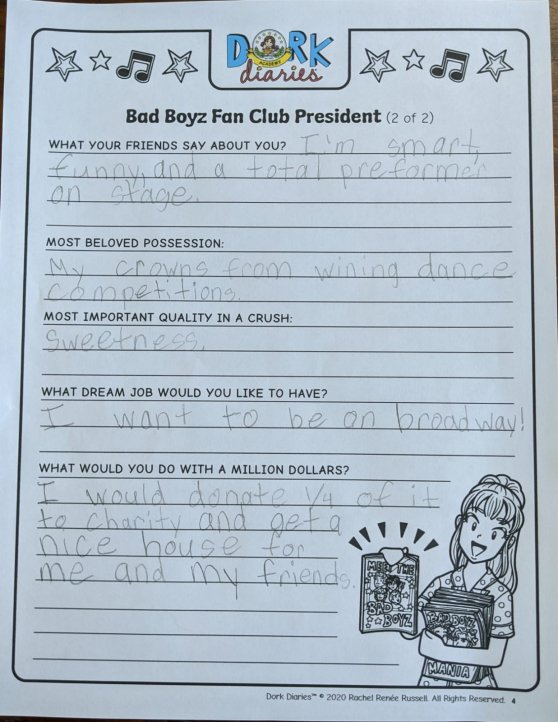 DORK
diaries
Bad Boyz Fan Club President (2 of 2)
WHAT YOUR FRIENDS SAY ABOUT YOU? I'm smart,
funny, and a total preformer
on stage.
MOST BELOVED POSSESSION:
My crowns from wining dance
competitions.
MOST IMPORTANT QUALITY IN A CRUSH:
Sweetness.
WHAT DREAM JOB WOULD YOU LIKE TO HAVE?
I want to be on broadway!
WHAT WOULD YOU DO WITH A MILLION DOLLARS?
I would donate 1/4 of it
to charity and get a
nice house for
me and my friends.
MEET THE
BAD
BOYZ
BAD BOYZ
MANIA
Dork Diaries™ © 2020 Rachel Renée Russell. All Rights Reserved. 4